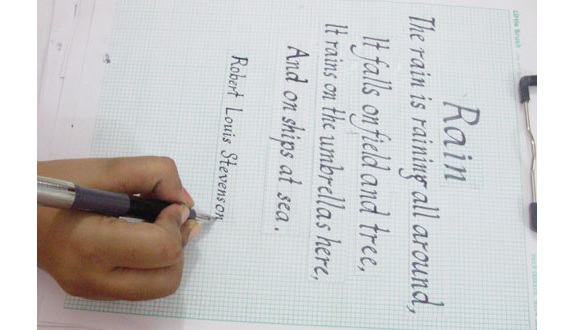 Rain
The rain is raining all around,
It falls on field and tree,
It rains on the umbrellas here,
And on ships at sea.
Robert Louis Stevenson